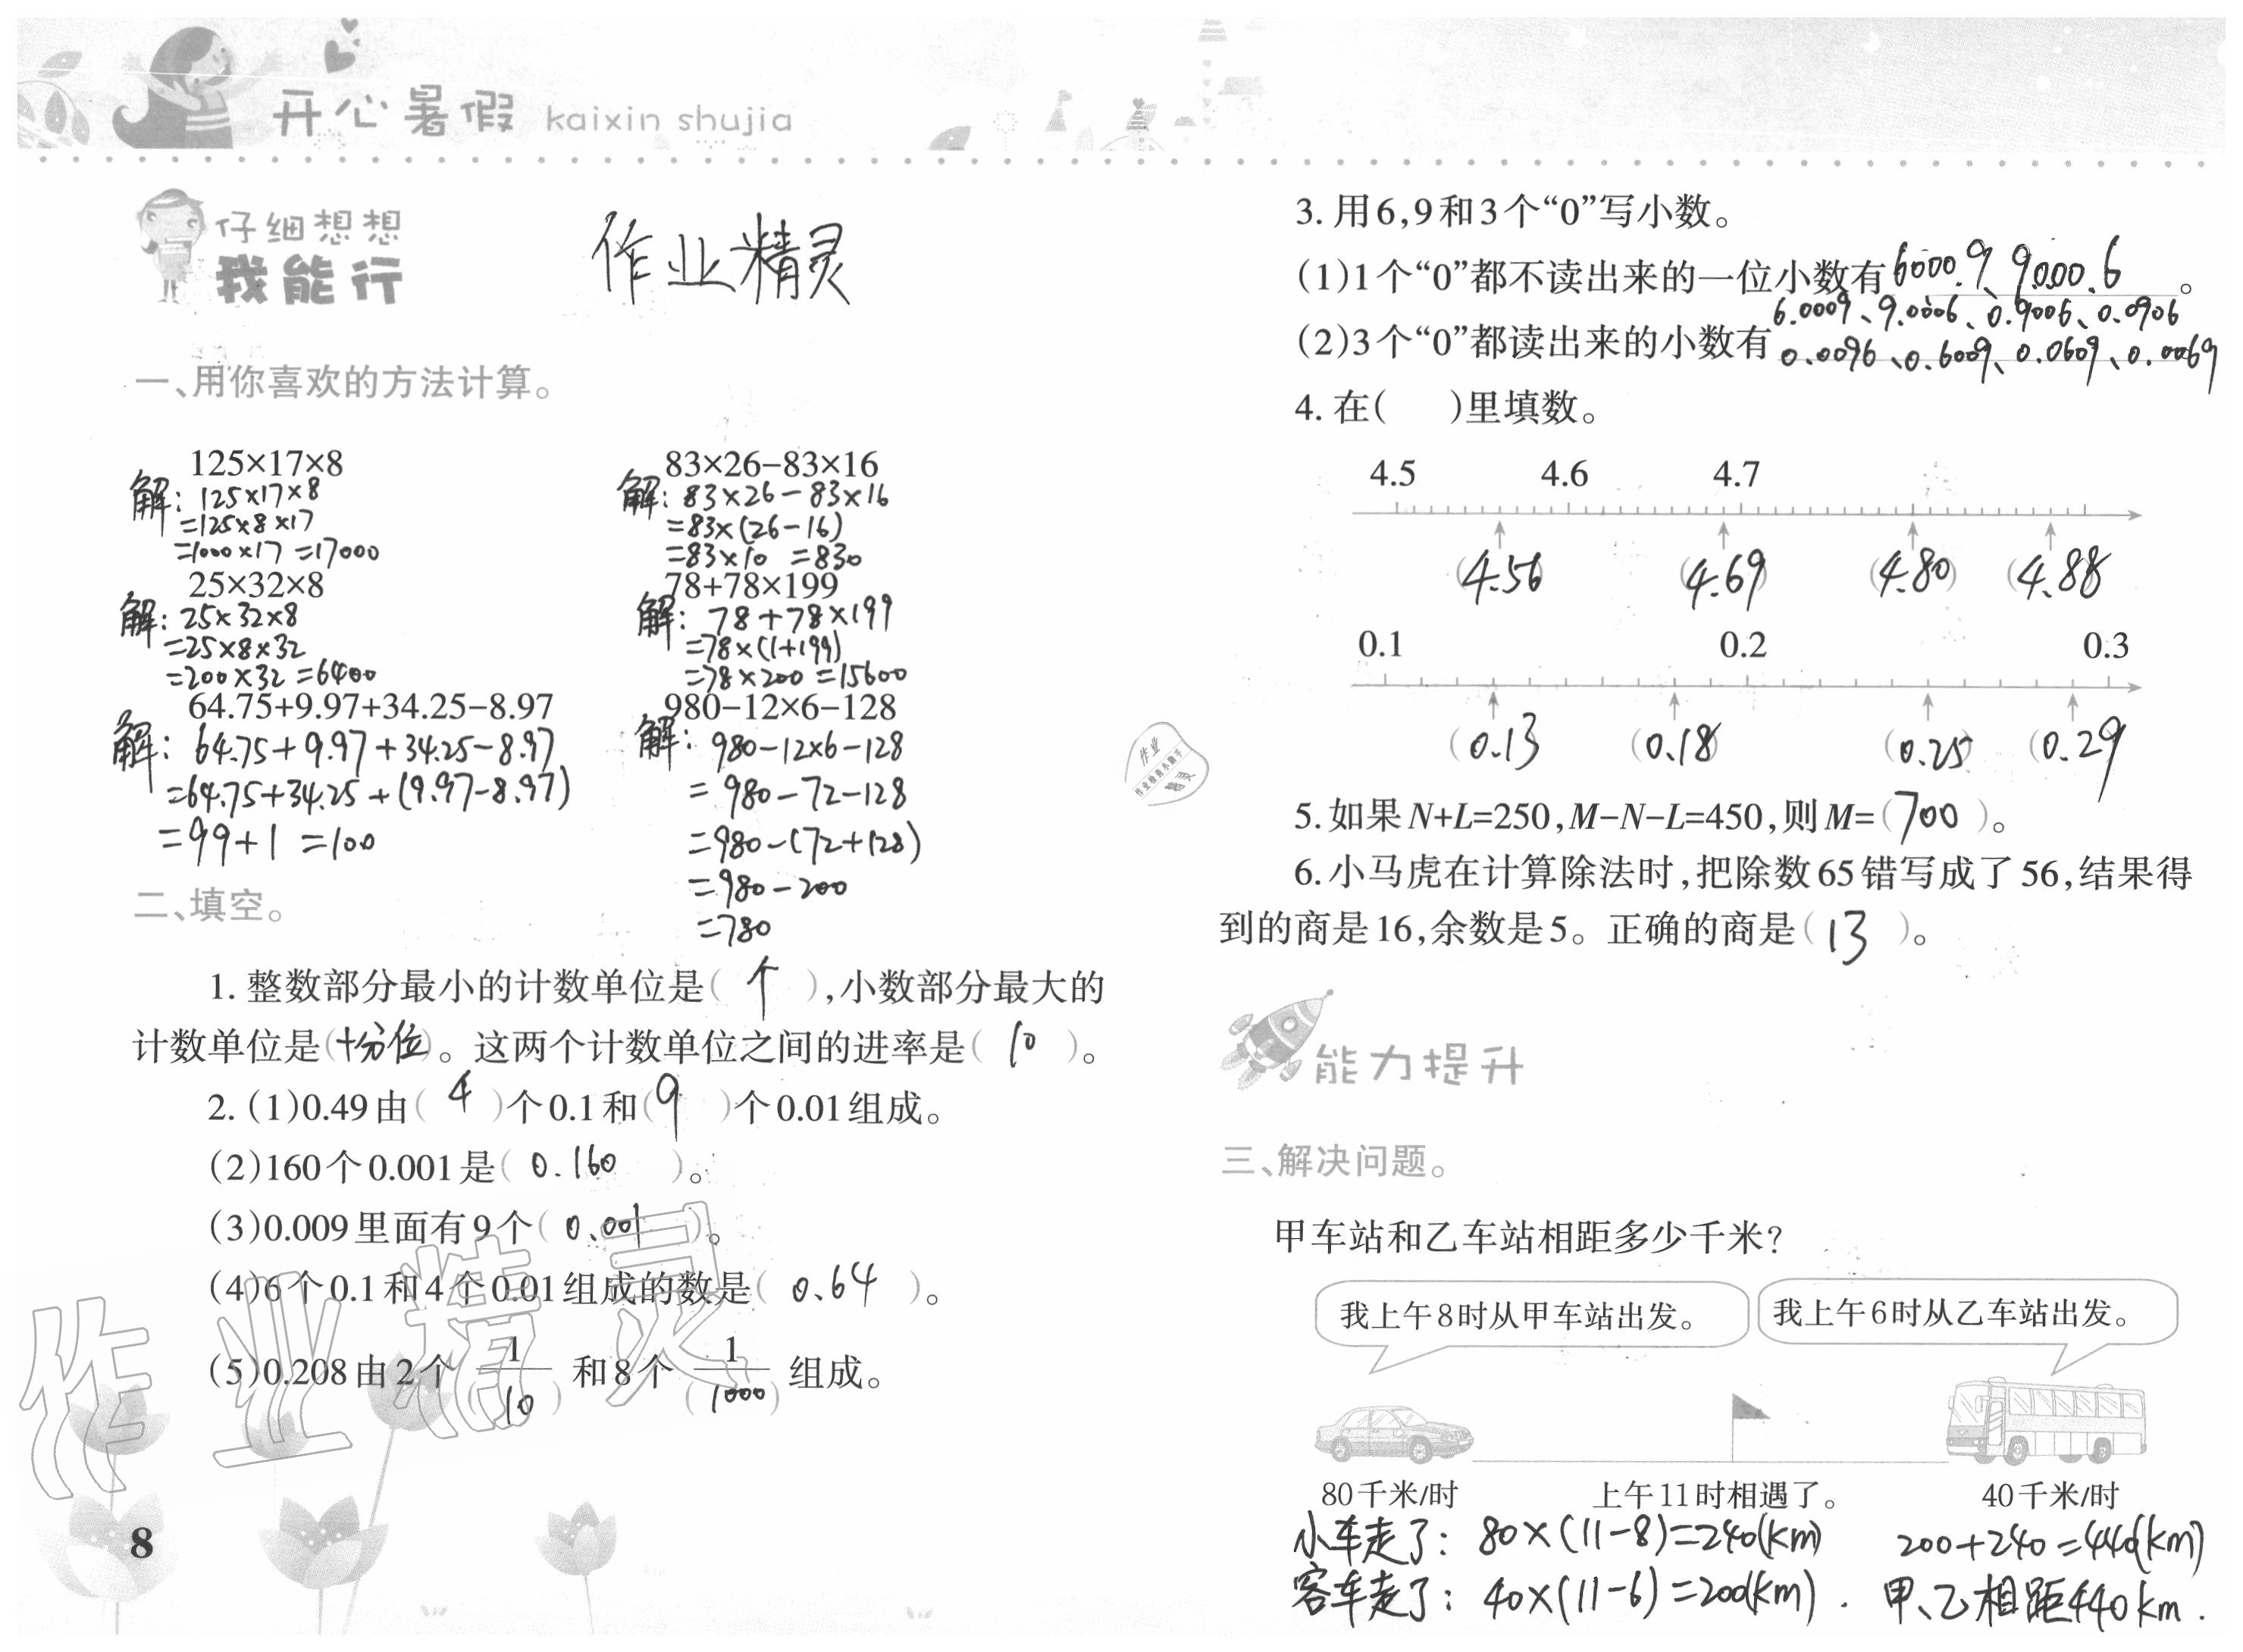 开心暑假 kaixin shujia
仔细想想
我能行
作业精灵
一、用你喜欢的方法计算。
125×17×8
解: 125×17×8
=125×8×17
=1000×17 =17000
83×26-83×16
解: 83×26-83×16
=83×(26-16)
=83×10 =830
25×32×8
解: 25×32×8
=25×8×32
=200×32 =6400
78+78×199
解: 78+78×199
=78×(1+199)
=78×200 =15600
64.75+9.97+34.25-8.97
解: 64.75+9.97+34.25-8.97
=64.75+34.25+(9.97-8.97)
=99+1 =100
980-12×6-128
解: 980-12×6-128
=980-72-128
=980-(72+128)
=980-200
=780
二、填空。
1. 整数部分最小的计数单位是( 个 ),小数部分最大的
计数单位是(十分位)。这两个计数单位之间的进率是( 10 )。
2. (1)0.49由( 4 )个0.1和( 9 )个0.01组成。
(2)160个0.001是( 0.160 )。
(3)0.009里面有9个( 0.001 )。
(4)6个0.1和4个0.01组成的数是( 0.64 )。
(5)0.208由2个 1/(10) 和8个 1/(1000) 组成。
作业精灵
8
3. 用6,9和3个“0”写小数。
(1)1个“0”都不读出来的一位小数有6000.9、9000.6。
(2)3个“0”都读出来的小数有6.0009、9.0006、0.9006、0.0906
0.0096、0.6009、0.0609、0.0069
4. 在( )里填数。
4.5 4.6 4.7
(4.56) (4.69) (4.80) (4.88)
0.1 0.2 0.3
(0.13) (0.18) (0.25) (0.29)
作业
作业检查小助手
精灵
5. 如果N+L=250,M-N-L=450,则M=(700)。
6. 小马虎在计算除法时,把除数65错写成了56,结果得
到的商是16,余数是5。正确的商是(13)。
能力提升
三、解决问题。
甲车站和乙车站相距多少千米?
我上午8时从甲车站出发。 我上午6时从乙车站出发。
80千米/时 上午11时相遇了。 40千米/时
小车走了: 80×(11-8)=240(km) 200+240=440(km)
客车走了: 40×(11-6)=200(km). 甲、乙相距440km.